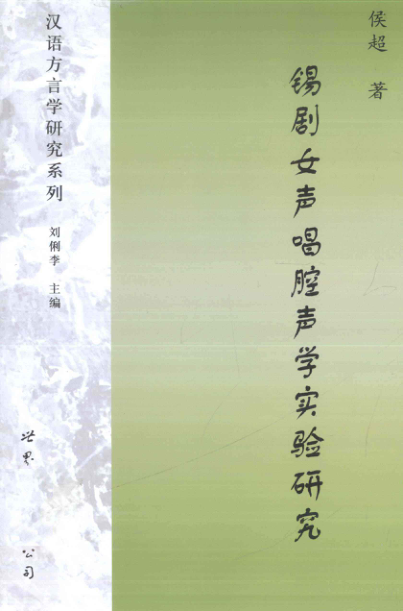 侯超 著
锡剧女声唱腔声学实验研究
汉语方言学研究系列
刘俐李 主编
世界
公司